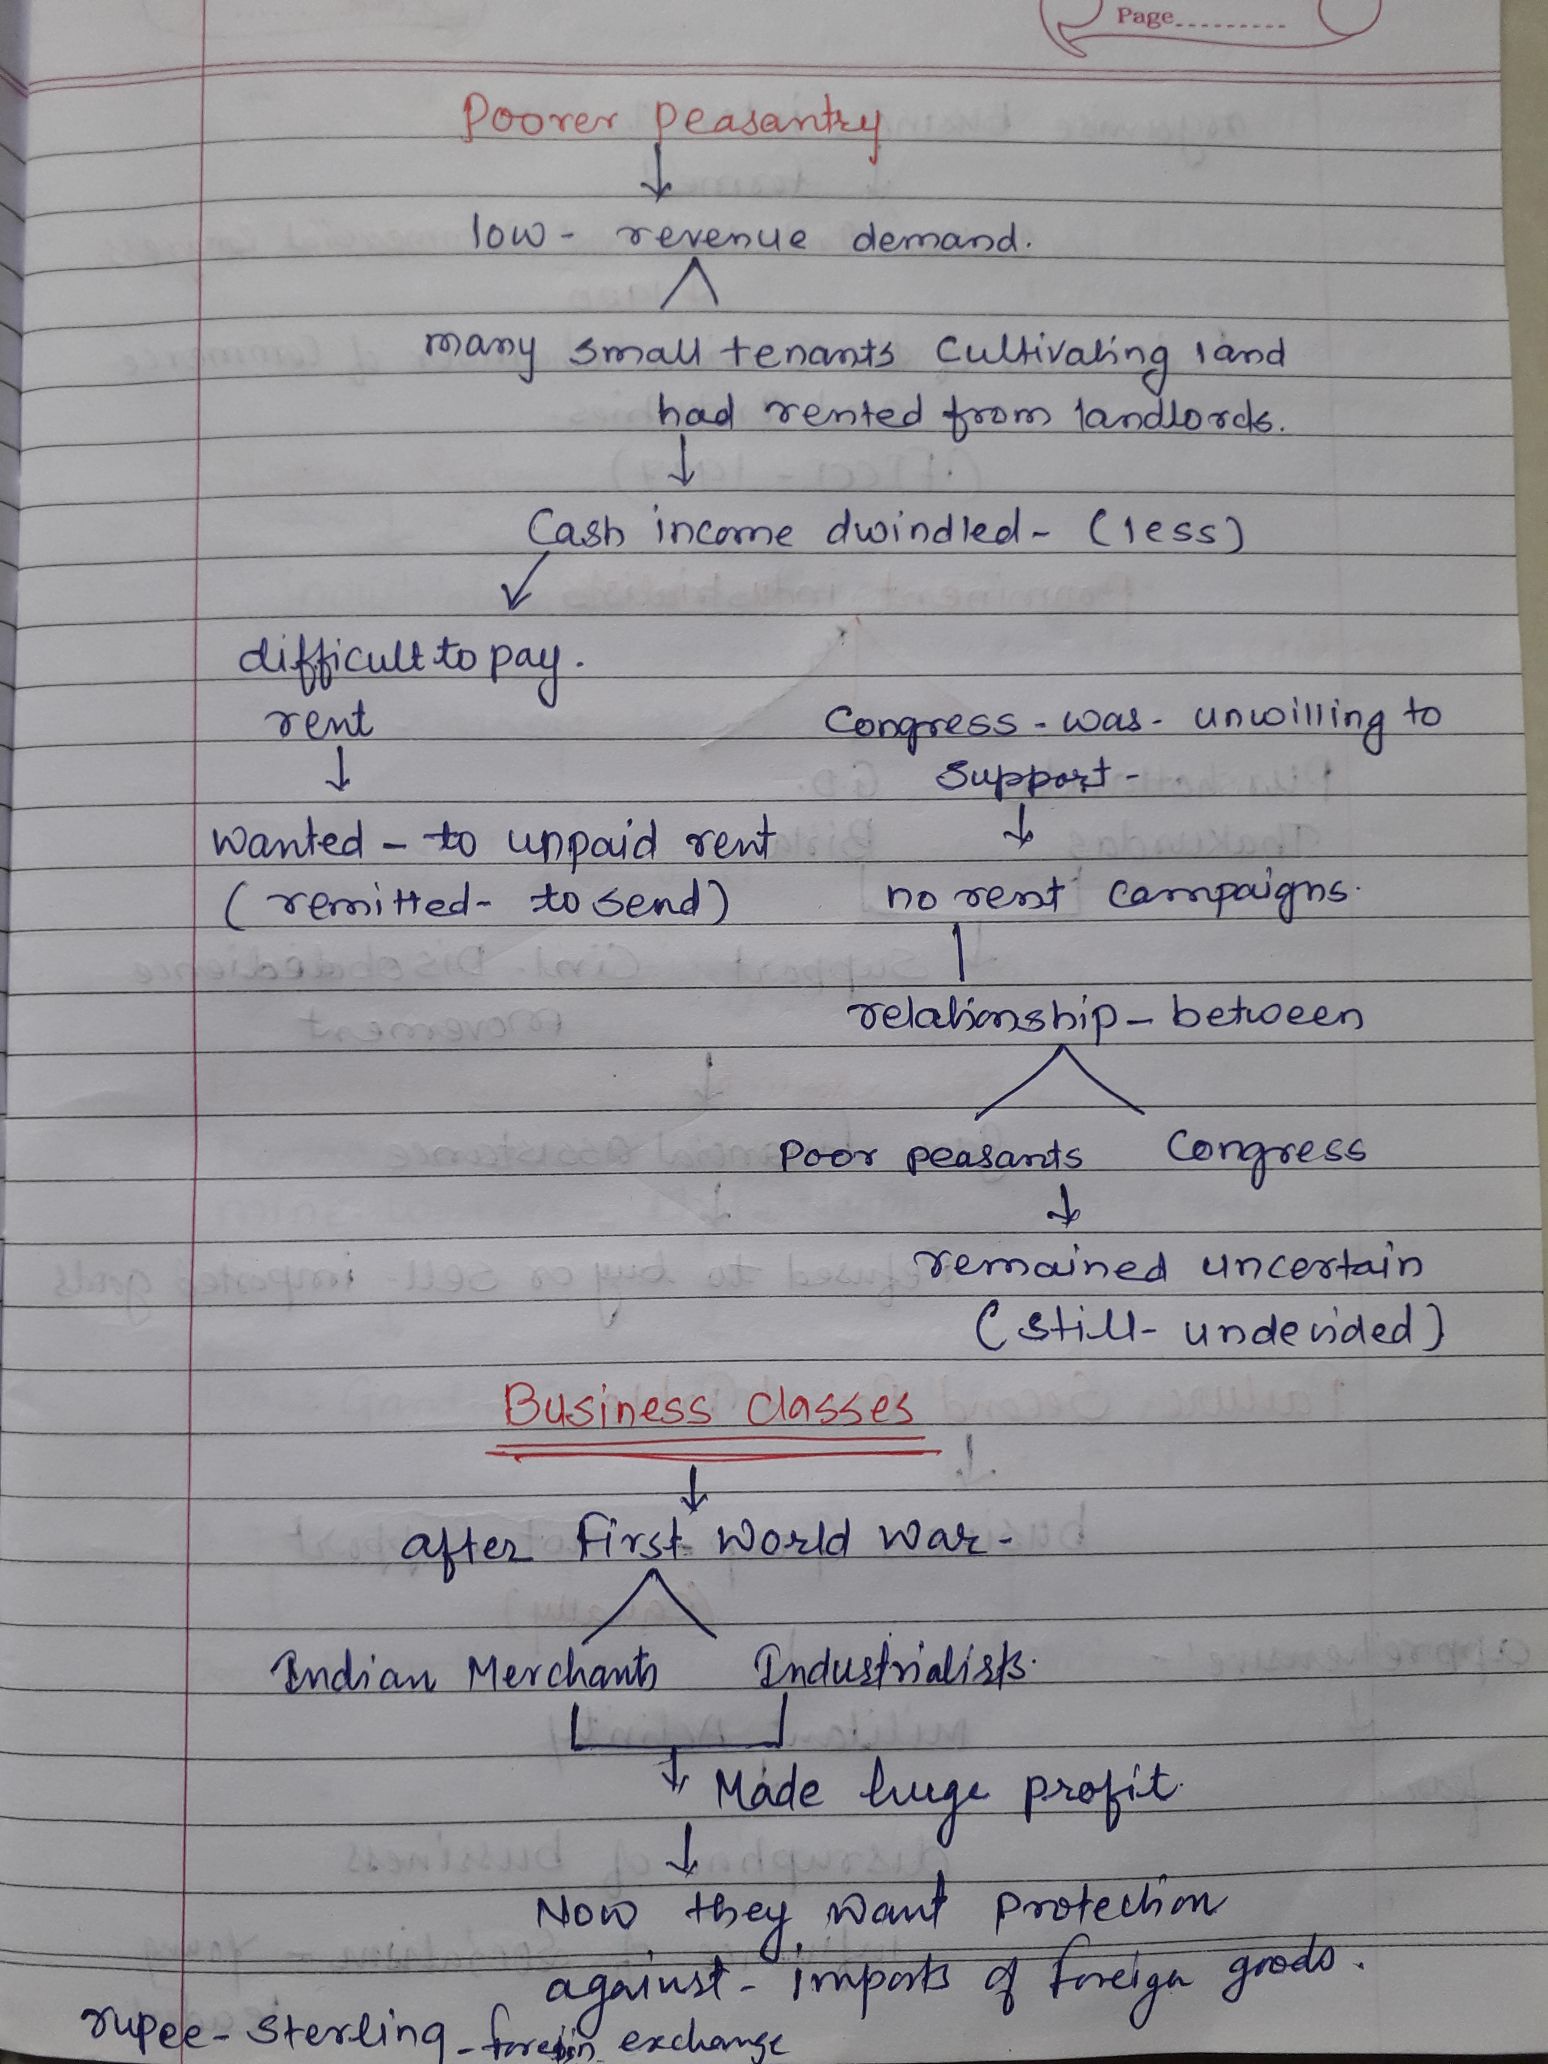 Page..........
Poorer Peasantry
low - revenue demand.
many small tenants Cultivating land
had rented from landlords.
Cash income dwindled - (less)
difficult to pay.
rent
Congress - was - unwilling to
support -
wanted - to unpaid rent
(remitted - to send)
no rent campaigns.
relationship - between
Poor peasants Congress
remained uncertain
(still - undecided)
Business Classes
after First World War -
Indian Merchants Industrialists.
Made huge profit.
Now they want Protection
against - imports of foreign goods.
rupee - sterling - foreign exchange